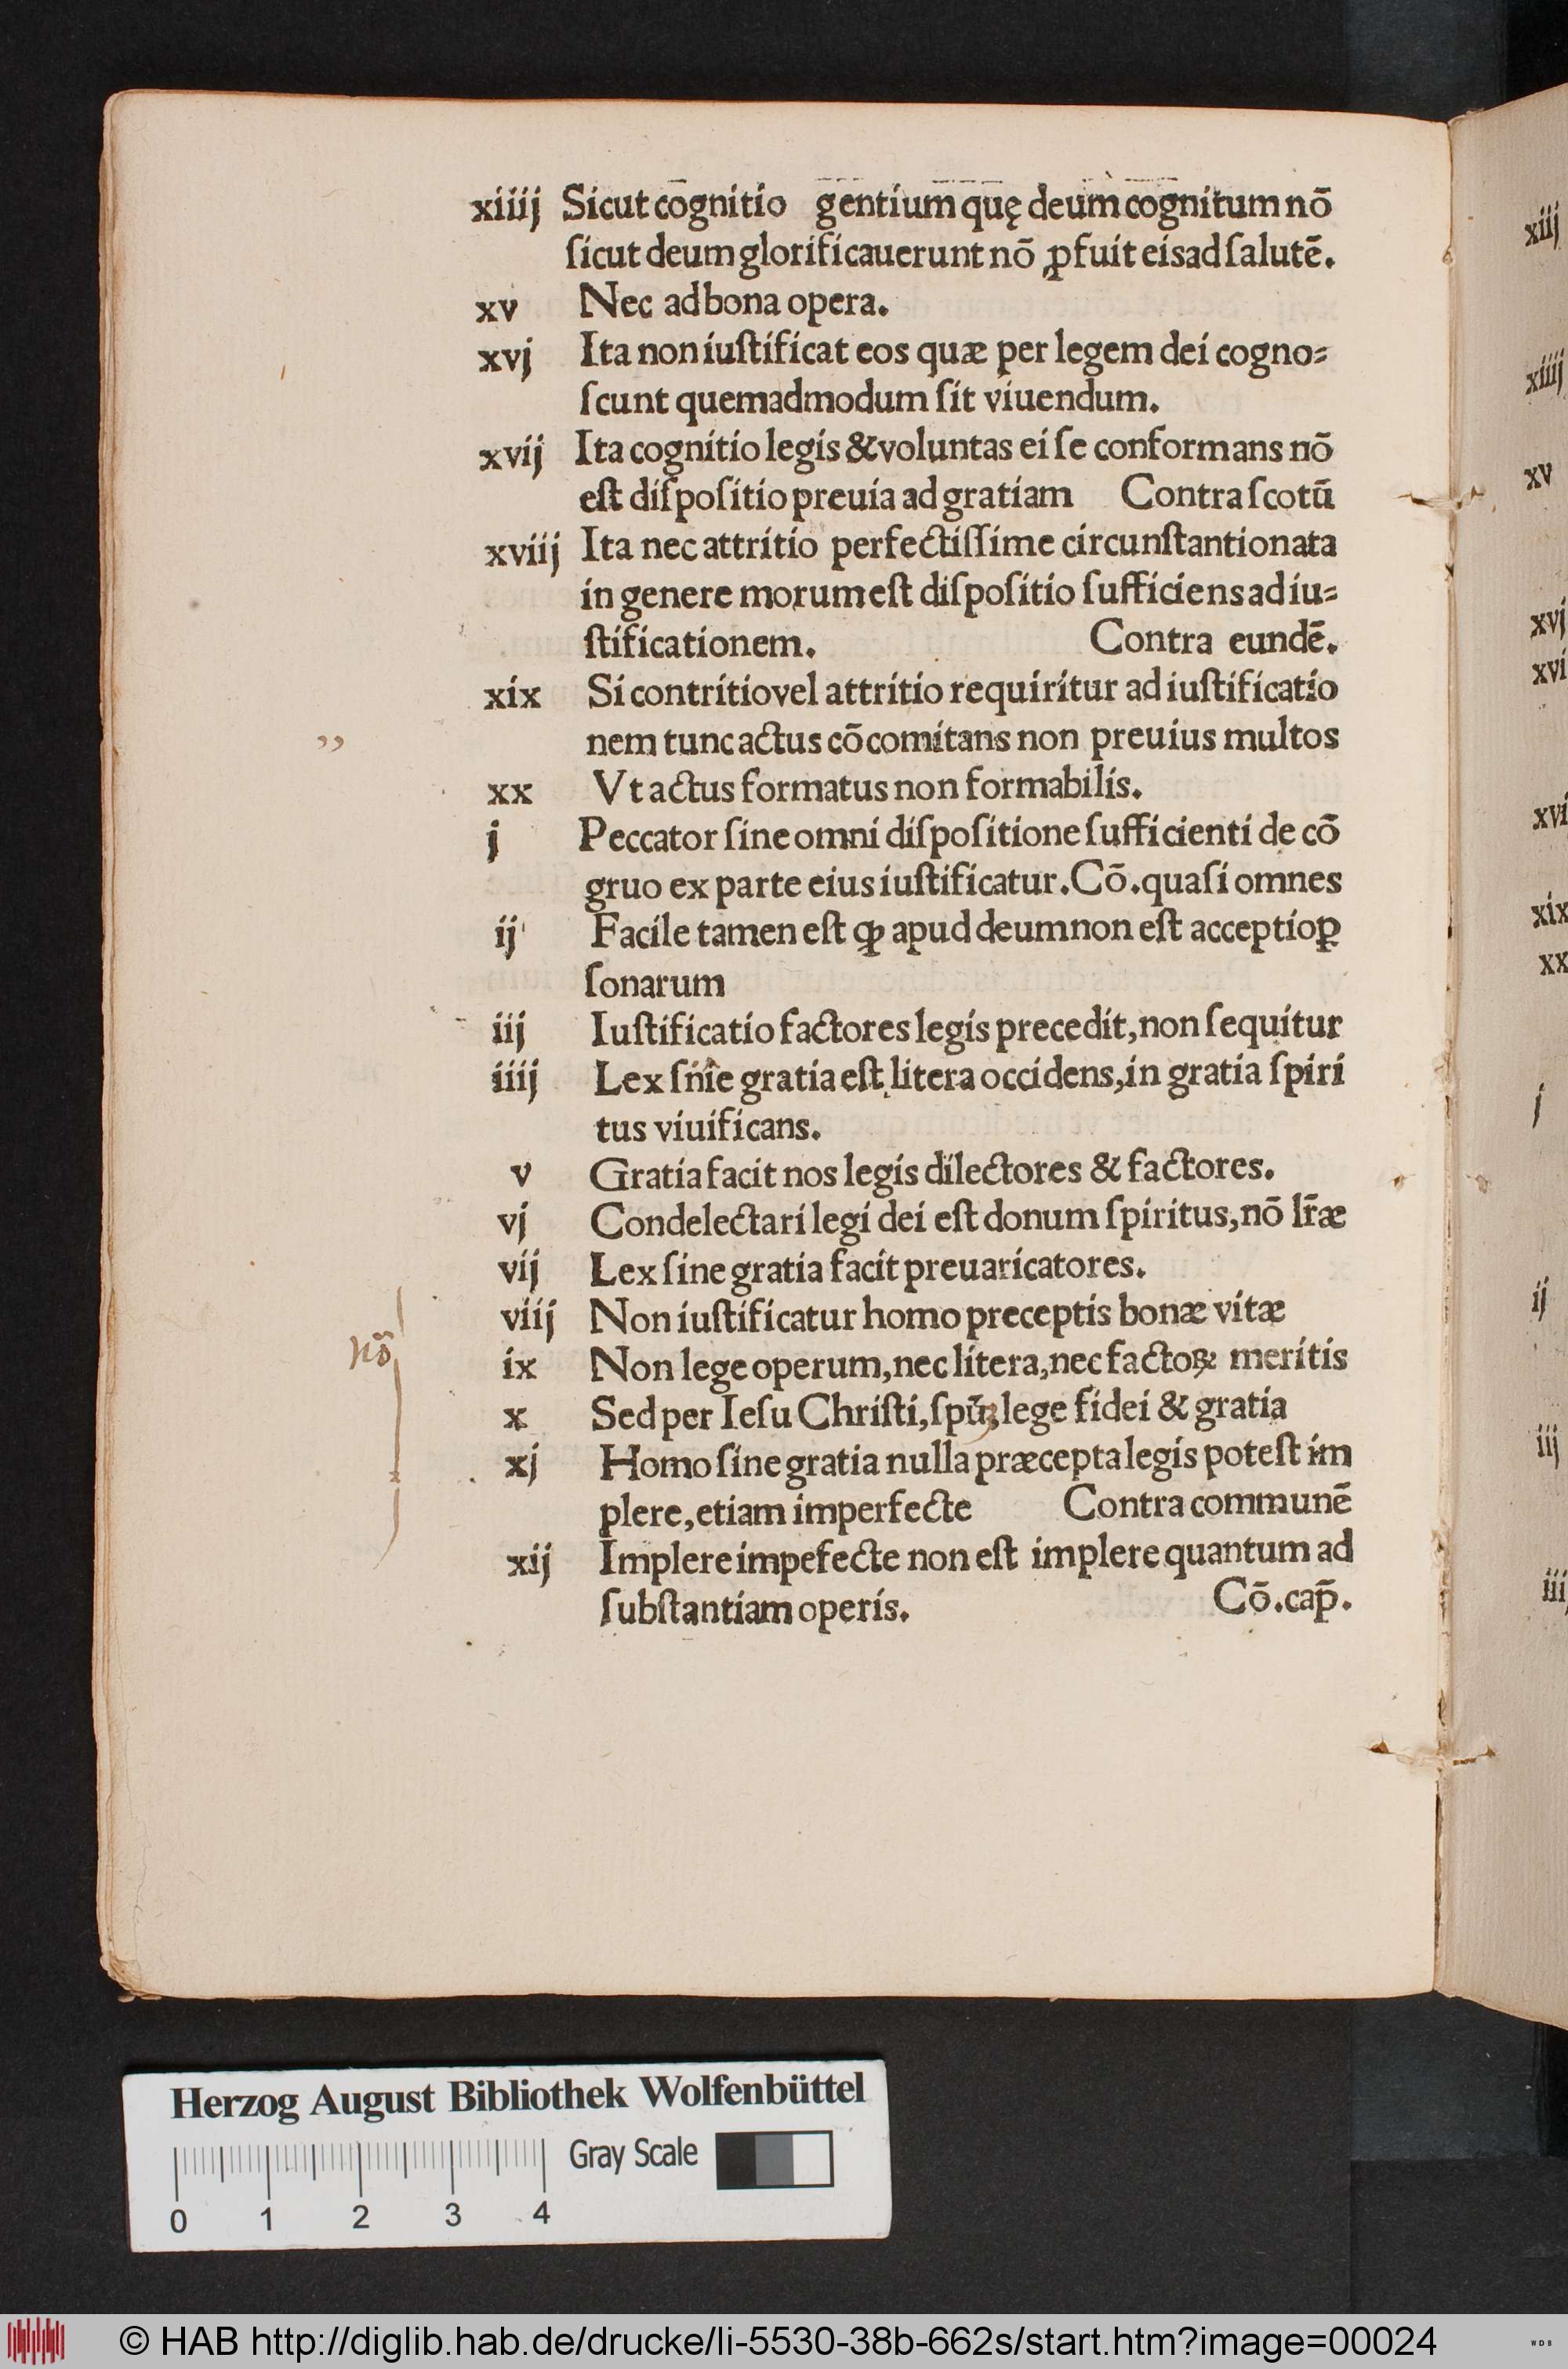 xiiij Sicut cognitio gentium quę deum cognitum nō
ſicut deum glorificauerunt nō ꝓfuit eis ad ſalutē.
xv Nec ad bona opera.
xvj Ita non iuſtificat eos quæ per legem dei cogno⸗
ſcunt quemadmodum ſit viuendum.
xvij Ita cognitio legis & voluntas ei ſe conformans nō
eſt diſpoſitio preuia ad gratiam Contra ſcotū
xviij Ita nec attritio perfectiſſime circunſtantionata
in genere morum eſt diſpoſitio ſufficiens ad iu⸗
ſtificationem. Contra eundē.
xix Si contritio vel attritio requiritur ad iuſtificatio
nem tunc actus cōcomitans non preuius multos
xx Vt actus formatus non formabilis.
j Peccator ſine omni diſpoſitione ſufficienti de cō
gruo ex parte eius iuſtificatur. Cō. quaſi omnes
ij Facile tamen eſt ꝙ apud deum non eſt acceptio ꝑ
ſonarum
iij Iuſtificatio factores legis precedit, non ſequitur
iiij Lex ſńīe gratia eſt litera occidens, in gratia ſpiri
tus viuificans.
v Gratia facit nos legis dilectores & factores.
vj Condelectari legi dei eſt donum ſpiritus, nō lr̄æ
vij Lex ſine gratia facit preuaricatores.
viij Non iuſtificatur homo preceptis bonæ vitæ
nō
ix Non lege operum, nec litera, nec factoꝝ meritis
x Sed per Ieſu Chriſti, ſpūꝫ lege fidei & gratia
xj Homo ſine gratia nulla præcepta legis poteſt im
plere, etiam imperfecte Contra communē
xij Implere impefecte non eſt implere quantum ad
ſubſtantiam operis. Cō. cap̄.
xiij
xiiij
xv
xvj
xvi
xvi
xix
xx
j
ij
iij
iii
Herzog August Bibliothek Wolfenbüttel
Gray Scale
0 1 2 3 4
© HAB http://diglib.hab.de/drucke/li-5530-38b-662s/start.htm?image=00024
WDB